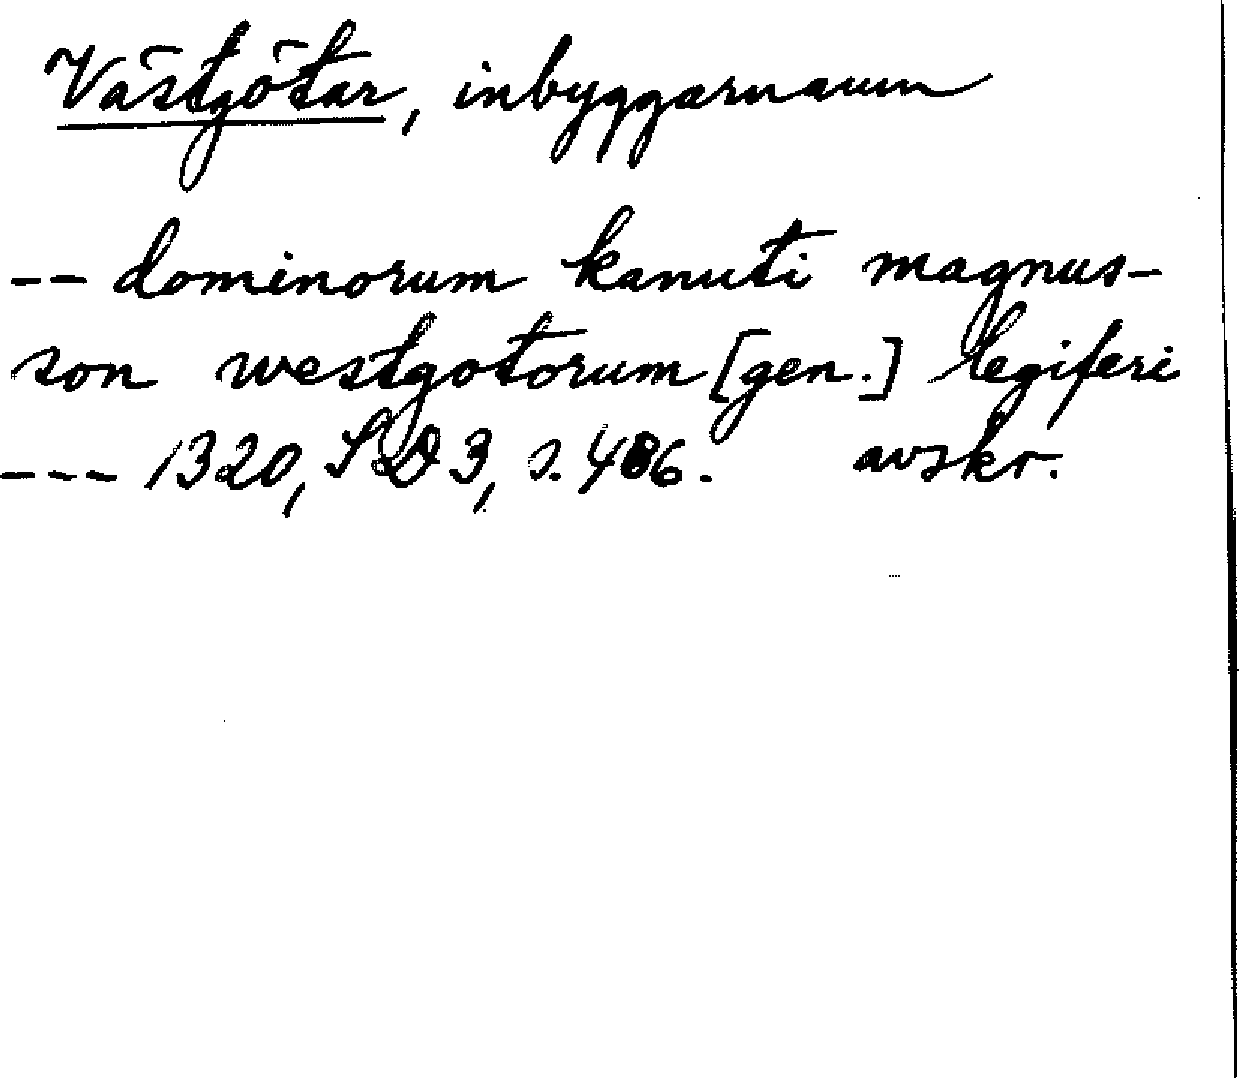 Västgötar, inbyggarnamn
-- dominorum kanuti magnus-
son westgotorum [gen.] legiferi
--- 1320, SD 3, s. 486. avskr.